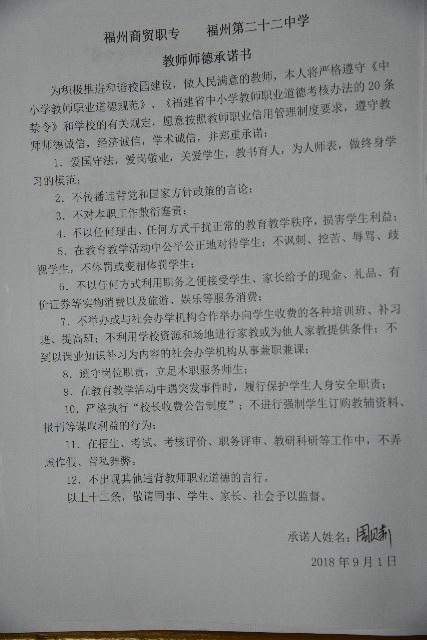 福州商贸职专 福州第二十二中学
教师师德承诺书
为积极推进和谐校园建设，做人民满意的教师，本人将严格遵守《中
小学教师职业道德规范》、《福建省中小学教师职业道德考核办法的20条
禁令》和学校的有关规定，愿意按照教师职业信用管理制度要求，遵守教
师师德诚信，经济诚信，学术诚信，并郑重承诺：
1．爱国守法，爱岗敬业，关爱学生，教书育人，为人师表，做终身学
习的模范；
2．不传播违背党和国家方针政策的言论；
3．不对本职工作敷衍塞责；
4．不以任何理由、任何方式干扰正常的教育教学秩序，损害学生利益；
5．在教育教学活动中公平公正地对待学生；不讽刺、挖苦、辱骂、歧
视学生，不体罚或变相体罚学生；
6．不以任何方式利用职务之便接受学生、家长给予的现金、礼品、有
价证券等实物消费以及旅游、娱乐等服务消费；
7．不举办或与社会办学机构合作举办向学生收费的各种培训班、补习
班、提高班；不利用学校资源和场地进行家教或为他人家教提供条件；不
到以课业知识补习为内容的社会办学机构从事兼职兼课；
8．遵守岗位职责，立足本职服务师生；
9．在教育教学活动中遇突发事件时，履行保护学生人身安全职责；
10．严格执行“校长收费公告制度”；不进行强制学生订购教辅资料、
报刊等谋取利益的行为；
11．在招生、考试、考核评价、职务评审、教研科研等工作中，不弄
虚作假、营私舞弊。
12．不出现其他违背教师职业道德的言行。
以上十二条，敬请同事、学生、家长、社会予以监督。
承诺人姓名：周
2018年9月1日